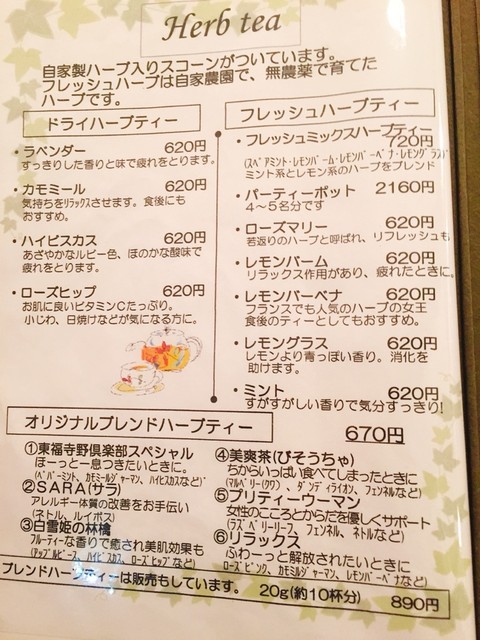 Herb tea
自家製ハーブ入りスコーンがついています。
フレッシュハーブは自家農園で、無農薬で育てた
ハーブです。
ドライハーブティー
・ラベンダー 620円
すっきりした香りと味で疲れをとります。
・カモミール 620円
気持ちをリラックスさせます。食後にも
おすすめ。
・ハイビスカス 620円
あざやかなルビー色、ほのかな酸味で
疲れをとります。
・ローズヒップ 620円
お肌に良いビタミンCたっぷり。
小じわ、日焼けなどが気になる方に。
フレッシュハーブティー
・フレッシュミックスハーブティー
720円
(スペアミント・レモンバーム・レモンバーベナ・レモングラス)
ミント系とレモン系のハーブをブレンド
・パーティーポット 2160円
4～5名分です
・ローズマリー 620円
若返りのハーブと呼ばれ、リフレッシュも
・レモンバーム 620円
リラックス作用があり、疲れたときに。
・レモンバーベナ 620円
フランスでも人気のハーブの女王
食後のティーとしてもおすすめ。
・レモングラス 620円
レモンより青っぽい香り。消化を
助けます。
・ミント 620円
すがすがしい香りで気分すっきり!
オリジナルブレンドハーブティー 670円
①東福寺野倶楽部スペシャル
ほーっと一息つきたいときに。
(ペパーミント、カモミールジャーマン、ハイビスカスなど)
②SARA(サラ)
アレルギー体質の改善をお手伝い
(ネトル、ルイボス)
③白雪姫の林檎
フルーティーな香りで癒され美肌効果も
(アップルピース、ハイビスカス、ローズヒップなど)
④美爽茶(びそうちゃ)
ちからいっぱい食べてしまったときに
(マルベリー(クワ)、ダンディライオン、フェンネルなど)
⑤プリティーウーマン
女性のこころとからだを優しくサポート
(ラズベリーリーフ、フェンネル、ネトルなど)
⑥リラックス
ふわーっと解放されたいときに
(ローズピンク、カモミルジャーマン、レモンバーベナなど)
ブレンドハーブティーは販売もしています。 20g(約10杯分) 890円